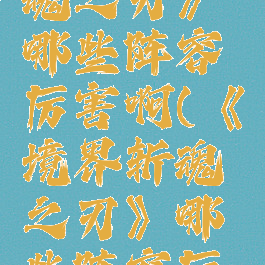 魂之刃》
哪些阵容
厉害啊(《
境界斩魂
之刃》哪
些阵容厉